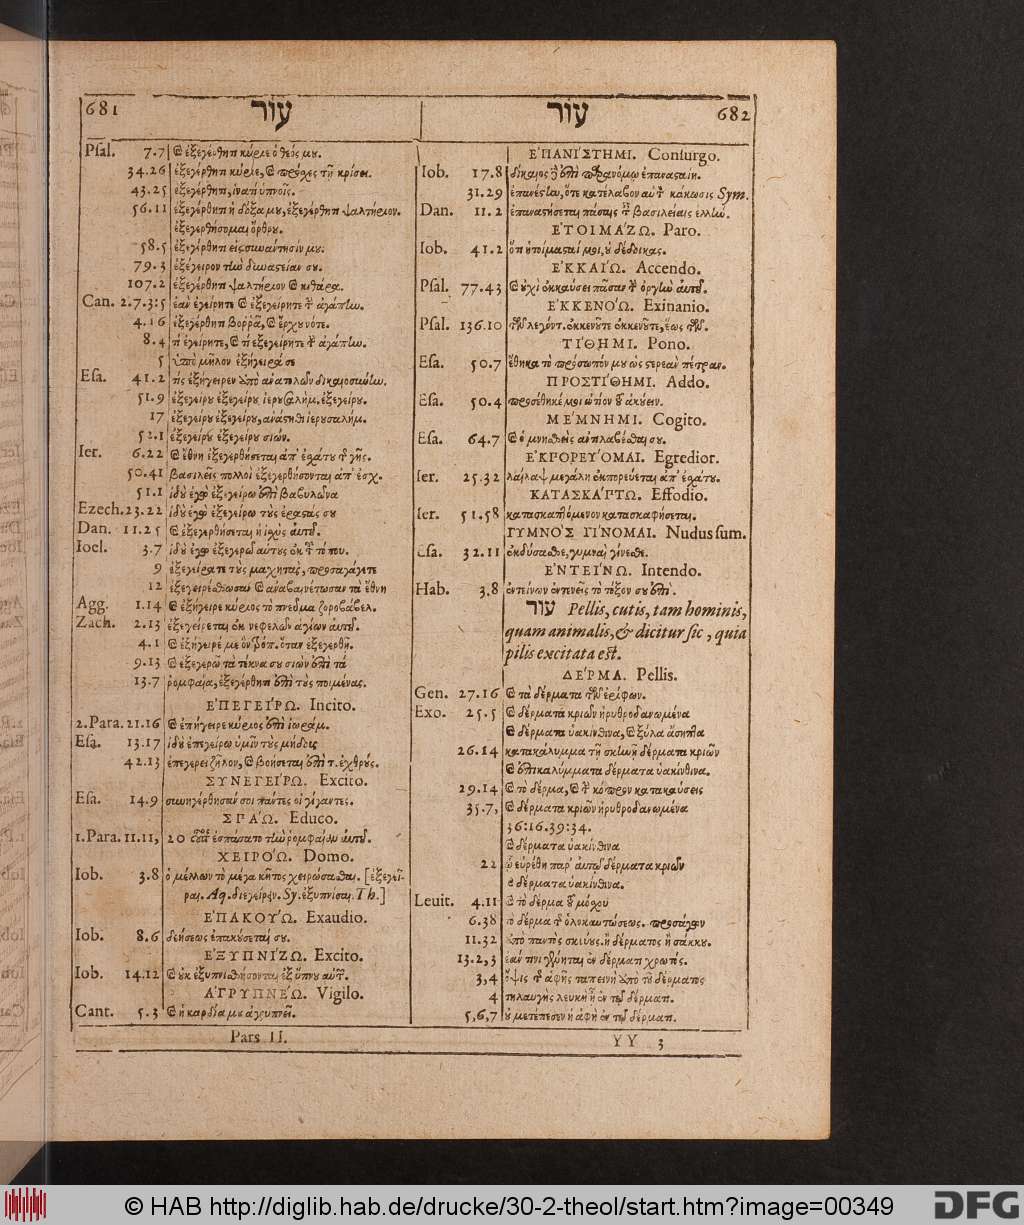 681 עור
Psal. 7.7 ἐξεγέρθητι κύριε ὁ θεός μου.
34.26 ἐξεγέρθητι κύριε, πρόσχες τῇ κρίσει
43.25 ἐξεγέρθητι, ἱνατί ὑπνοῖς.
56.11 ἐξεγέρθητι ἡ δόξα μου, ἐξεγέρθητι ψαλτήριον.
ἐξεγερθήσομαι ὄρθρου.
58.5 ἐξεγέρθητι εἰς συνάντησίν μου.
79.3 ἐξέγειρον τὴν δυναστείαν σου.
107.2 ἐξεγέρθητι ψαλτήριον κιθάρα.
Can. 2.7.3:5 ἐὰν ἐγείρητε ἐξεγείρητε τ̃ ἀγάπην.
4.16 ἐξεγέρθητι βορρᾶ, ἔρχου νότε.
8.4 τί ἐγείρητε, τί ἐξεγείρητε τ̃ ἀγάπην.
5 ὑπὸ μῆλον ἐξήγειρά σε
Esa. 41.2 τίς ἐξήγειρεν ἀπὸ ἀνατολῶν δικαιοσύνην.
51.9 ἐξεγείρου ἐξεγείρου ἱερουσαλήμ. ἐξεγείρου.
17 ἐξεγείρου ἐξεγείρου, ἀνάστηθι ἱερουσαλήμ.
52.1 ἐξεγείρου ἐξεγείρου σιών.
Ier. 6.22 ἔθνη ἐξεγερθήσεται ἀπ' ἐσχάτου τ̃ γῆς.
50.41 βασιλεῖς πολλοὶ ἐξεγερθήσονται ἀπ' ἐσχ.
51.1 ἰδοὺ ἐγὼ ἐξεγείρω ἐπὶ βαβυλῶνα
Ezech. 23.22 ἰδοὺ ἐγὼ ἐξεγείρω τοὺς ἐραστάς σου
Dan. 11.25 ἐξεγερθήσεται ἡ ἰσχὺς αὐτοῦ.
Ioel. 3.7 ἰδοὺ ἐγὼ ἐξεγερῶ αὐτοὺς ἐκ τ̃ τόπου.
9 ἐξεγείρατε τοὺς μαχητάς, προσαγάγετε
12 ἐξεγειρέσθωσαν ἀναβαινέτωσαν τὰ ἔθνη
Agg. 1.14 ἐξήγειρε κύριος τὸ πνεῦμα ζοροβάβελ.
Zach. 2.13 ἐξεγείρεται ἐκ νεφελῶν ἁγίων αὐτοῦ.
4.1 ἐξήγειρέ με ὃν τρόπ. ὅταν ἐξεγερθῇ.
9.13 ἐξεγερῶ τὰ τέκνα σου σιὼν ἐπὶ τὰ
13.7 ῥομφαία, ἐξεγέρθητι ἐπὶ τοὺς ποιμένας.
ἘΠΕΓΕΊΡΩ. Incito.
2.Para. 21.16 ἐπήγειρε κύριος ἐπὶ ἰωράμ.
Esa. 13.17 ἰδοὺ ἐπεγείρω ὑμῖν τοὺς μήδους
42.13 ἐπεγερεῖ ζῆλον, βοήσεται ἐπὶ τ. ἐχθρούς.
ΣΥΝΕΓΕΊΡΩ. Excito.
Esa. 14.9 συνηγέρθησάν σοι πάντες οἱ γίγαντες.
ΣΠΆΩ. Educo.
1.Para. 11.11, 20 ἐσπάσατο τὴν ῥομφαίαν αὐτοῦ.
ΧΕΙΡΌΩ. Domo.
Iob. 3.8 ὁ μέλλων τὸ μέγα κῆτος χειρώσασθαι. [ἐξεγεῖ-
ραι, Aq. διεγείρειν. Sy. ἐξυπνίσαι. Th.]
ἘΠΑΚΟΎΩ. Exaudio.
Iob. 8.6 δεήσεως ἐπακούσεταί σου.
ἘΞΥΠΝΊΖΩ. Excito.
Iob. 14.12 οὐκ ἐξυπνισθήσονται ἐξ ὕπνου αὐτ̃.
ἈΓΡΥΠΝΈΩ. Vigilo.
Cant. 5.3 ἡ καρδία μου ἀγρυπνεῖ.
Pars II.
עור 682
ἘΠΑΝΊΣΤΗΜΙ. Consurgo.
Iob. 17.8 δίκαιος ἐπὶ παρανόμῳ ἐπανασταίη.
31.29 ἐπανέστην, ὅτε κατέλαβον αὐτ̃ κάκωσις Sym.
Dan. 11.2 ἐπαναστήσεται πάσαις τ̃ βασιλείαις ἑλλήν.
ἙΤΟΙΜΆΖΩ. Paro.
Iob. 41.2 ὅτι ἡτοίμασταί μοι, οὐ δέδοικας.
ἘΚΚΑΊΩ. Accendo.
Psal. 77.43 οὐχὶ ἐκκαύσει πᾶσαν τ̃ ὀργὴν αὐτοῦ.
ἘΚΚΕΝΌΩ. Exinanio.
Psal. 136.10 τῶν λεγόντ. ἐκκενοῦτε ἐκκενοῦτε, ἕως τῶν.
ΤΊΘΗΜΙ. Pono.
Esa. 50.7 ἔθηκα τὸ πρόσωπόν μου ὡς στερεὰν πέτραν.
ΠΡΟΣΤΊΘΗΜΙ. Addo.
Esa. 50.4 προσέθηκέ μοι ὠτίον τοῦ ἀκούειν.
ΜΈΜΝΗΜΙ. Cogito.
Esa. 64.7 ὁ μνησθεὶς ἀντιλαβέσθαι σου.
ἘΚΠΟΡΕΎΟΜΑΙ. Egredior.
Ier. 25.32 λαίλαψ μεγάλη ἐκπορεύεται ἀπ' ἐσχάτου.
ΚΑΤΑΣΚΆΠΤΩ. Effodio.
Ier. 51.58 κατασκαπτόμενον κατασκαφήσεται.
ΓΥΜΝῸΣ ΓΊΝΟΜΑΙ. Nudus sum.
Esa. 32.11 ἐκδύσασθε, γυμναὶ γίνεσθε.
ἘΝΤΕΊΝΩ. Intendo.
Hab. 3.8 ἐντείνων ἐντενεῖς τὸ τόξον σου ἐπί.
עור Pellis, cutis, tam hominis,
quam animalis, & dicitur sic, quia
pilis excitata est.
ΔΈΡΜΑ. Pellis.
Gen. 27.16 τὰ δέρματα τῶν ἐρίφων.
Exo. 25.5 δέρματα κριῶν ἠρυθροδανωμένα
δέρματα ὑακίνθινα, ξύλα ἄσηπτα
26.14 κατακάλυμμα τῇ σκηνῇ δέρματα κριῶν
ἐπικαλύμματα δέρματα ὑακίνθινα.
29.14 τὸ δέρμα, τ̃ κόπρον κατακαύσεις
35.7, δέρματα κριῶν ἠρυθροδανωμένα
36:16.39:34.
δέρματα ὑακίνθινα
22 ᾧ εὑρέθη παρ' αὐτῷ δέρματα κριῶν
δέρματα ὑακίνθινα.
Levit. 4.11 τὸ δέρμα τοῦ μόσχου
6.38 τὸ δέρμα τ̃ ὁλοκαυτώσεως. προσάγων
11.32 ἀπὸ παντὸς σκεύους. ἢ δέρματος ἢ σάκκου.
13.2,3 ἐάν τινι γένηται ἐν δέρματι χρωτός.
3,4 ὄψις τ̃ ἁφῆς ταπεινὴ ἀπὸ τοῦ δέρματος
4 τηλαυγὴς λευκὴ ᾖ ἐν τῷ δέρματι.
5,6,7 οὐ μετέπεσεν ἡ ἁφὴ ἐν τῷ δέρματι.
YY 3
© HAB http://diglib.hab.de/drucke/30-2-theol/start.htm?image=00349
DFG